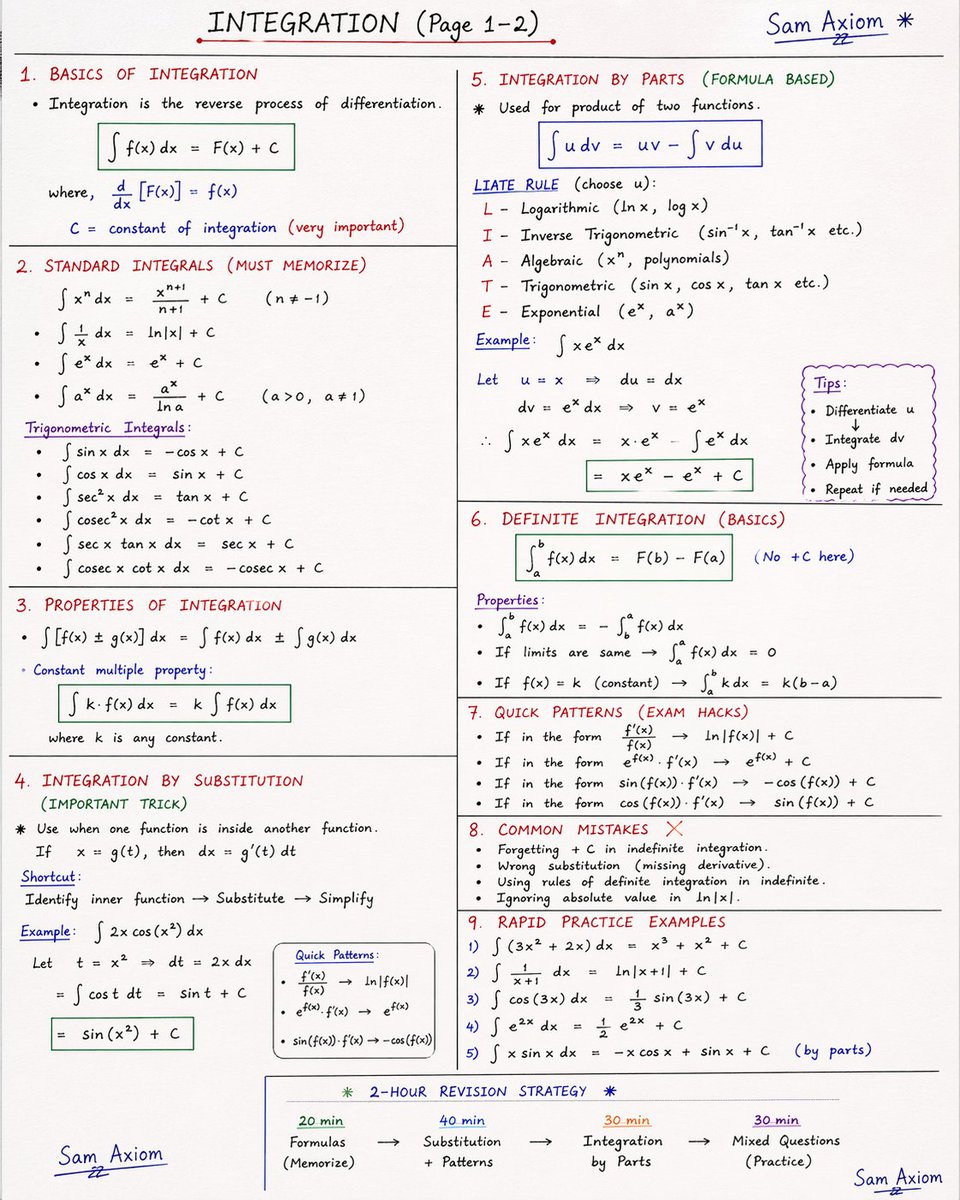 INTEGRATION (Page 1-2)
Sam Axiom *
1. BASICS OF INTEGRATION
• Integration is the reverse process of differentiation.
∫ f(x) dx = F(x) + C
where, d/dx [F(x)] = f(x)
C = constant of integration (very important)
2. STANDARD INTEGRALS (MUST MEMORIZE)
∫ xⁿ dx = xⁿ⁺¹/n+1 + C (n ≠ -1)
• ∫ 1/x dx = ln|x| + C
• ∫ eˣ dx = eˣ + C
• ∫ aˣ dx = aˣ/ln a + C (a>0, a≠1)
Trigonometric Integrals:
• ∫ sin x dx = -cos x + C
• ∫ cos x dx = sin x + C
• ∫ sec² x dx = tan x + C
• ∫ cosec² x dx = -cot x + C
• ∫ sec x tan x dx = sec x + C
• ∫ cosec x cot x dx = -cosec x + C
3. PROPERTIES OF INTEGRATION
• ∫ [f(x) ± g(x)] dx = ∫ f(x) dx ± ∫ g(x) dx
• Constant multiple property:
∫ k·f(x) dx = k ∫ f(x) dx
where k is any constant.
4. INTEGRATION BY SUBSTITUTION
(IMPORTANT TRICK)
* Use when one function is inside another function.
If x = g(t), then dx = g'(t) dt
Shortcut:
Identify inner function → Substitute → Simplify
Example: ∫ 2x cos(x²) dx
Let t = x² ⇒ dt = 2x dx
= ∫ cos t dt = sin t + C
= sin(x²) + C
Quick Patterns:
• f'(x)/f(x) → ln|f(x)|
• e^f(x)·f'(x) → e^f(x)
• sin(f(x))·f'(x) → -cos(f(x))
5. INTEGRATION BY PARTS (FORMULA BASED)
* Used for product of two functions.
∫ u dv = uv - ∫ v du
LIATE RULE (choose u):
L - Logarithmic (ln x, log x)
I - Inverse Trigonometric (sin⁻¹x, tan⁻¹x etc.)
A - Algebraic (xⁿ, polynomials)
T - Trigonometric (sin x, cos x, tan x etc.)
E - Exponential (eˣ, aˣ)
Example: ∫ x eˣ dx
Let u = x ⇒ du = dx
dv = eˣ dx ⇒ v = eˣ
∴ ∫ x eˣ dx = x·eˣ - ∫ eˣ dx
= x eˣ - eˣ + C
Tips:
• Differentiate u
↓
• Integrate dv
• Apply formula
• Repeat if needed
6. DEFINITE INTEGRATION (BASICS)
∫ₐᵇ f(x) dx = F(b) - F(a) (No +C here)
Properties:
• ∫ₐᵇ f(x) dx = - ∫_b^a f(x) dx
• If limits are same → ∫ₐᵃ f(x) dx = 0
• If f(x) = k (constant) → ∫ₐᵇ k dx = k(b-a)
7. QUICK PATTERNS (EXAM HACKS)
• If in the form f'(x)/f(x) → ln|f(x)| + C
• If in the form e^f(x)·f'(x) → e^f(x) + C
• If in the form sin(f(x))·f'(x) → -cos(f(x)) + C
• If in the form cos(f(x))·f'(x) → sin(f(x)) + C
8. COMMON MISTAKES ✗
• Forgetting + C in indefinite integration.
• Wrong substitution (missing derivative).
• Using rules of definite integration in indefinite.
• Ignoring absolute value in ln|x|.
9. RAPID PRACTICE EXAMPLES
1) ∫ (3x² + 2x) dx = x³ + x² + C
2) ∫ 1/x+1 dx = ln|x+1| + C
3) ∫ cos(3x) dx = 1/3 sin(3x) + C
4) ∫ e²ˣ dx = 1/2 e²ˣ + C
5) ∫ x sin x dx = -x cos x + sin x + C (by parts)
* 2-HOUR REVISION STRATEGY *
20 min 40 min 30 min 30 min
Formulas → Substitution → Integration → Mixed Questions
(Memorize) + Patterns by Parts (Practice)
Sam Axiom
Sam Axiom